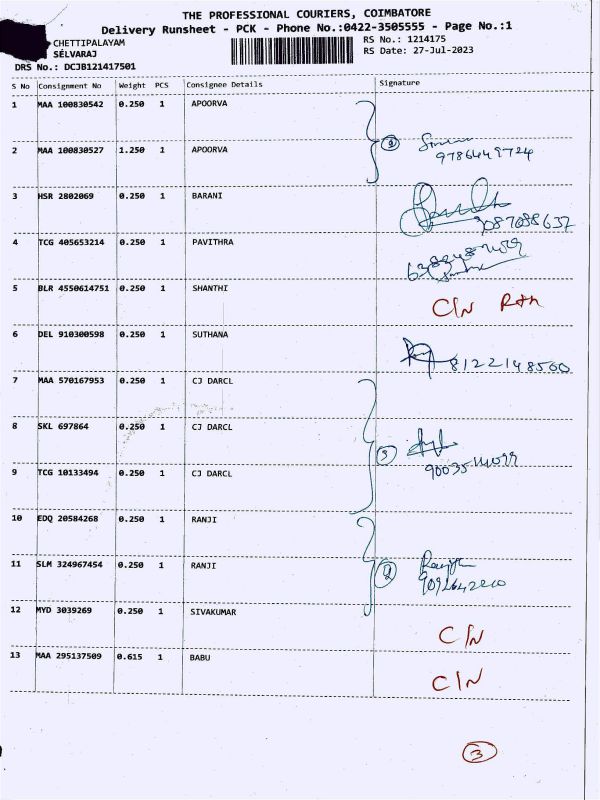 THE PROFESSIONAL COURIERS, COIMBATORE
Delivery Runsheet - PCK - Phone No.:0422-3505555 - Page No.:1
CHETTIPALAYAM
SELVARAJ
RS No.: 1214175
RS Date: 27-Jul-2023
DRS No.: DCJB121417501
S No Consignment No Weight PCS Consignee Details Signature
1 MAA 100830542 0.250 1 APOORVA
2 MAA 100830527 1.250 1 APOORVA
2
9786449724
3 HSR 2802069 0.250 1 BARANI
9087088637
4 TCG 405653214 0.250 1 PAVITHRA
5 BLR 4550614751 0.250 1 SHANTHI
C/N
6 DEL 910300598 0.250 1 SUTHANA
8122148500
7 MAA 570167953 0.250 1 CJ DARCL
8 SKL 697864 0.250 1 CJ DARCL
3
9 TCG 10133494 0.250 1 CJ DARCL
10 EDQ 20584268 0.250 1 RANJI
11 SLM 324967454 0.250 1 RANJI
2
12 MYD 3039269 0.250 1 SIVAKUMAR
C/N
13 MAA 295137509 0.615 1 BABU
C/N
3